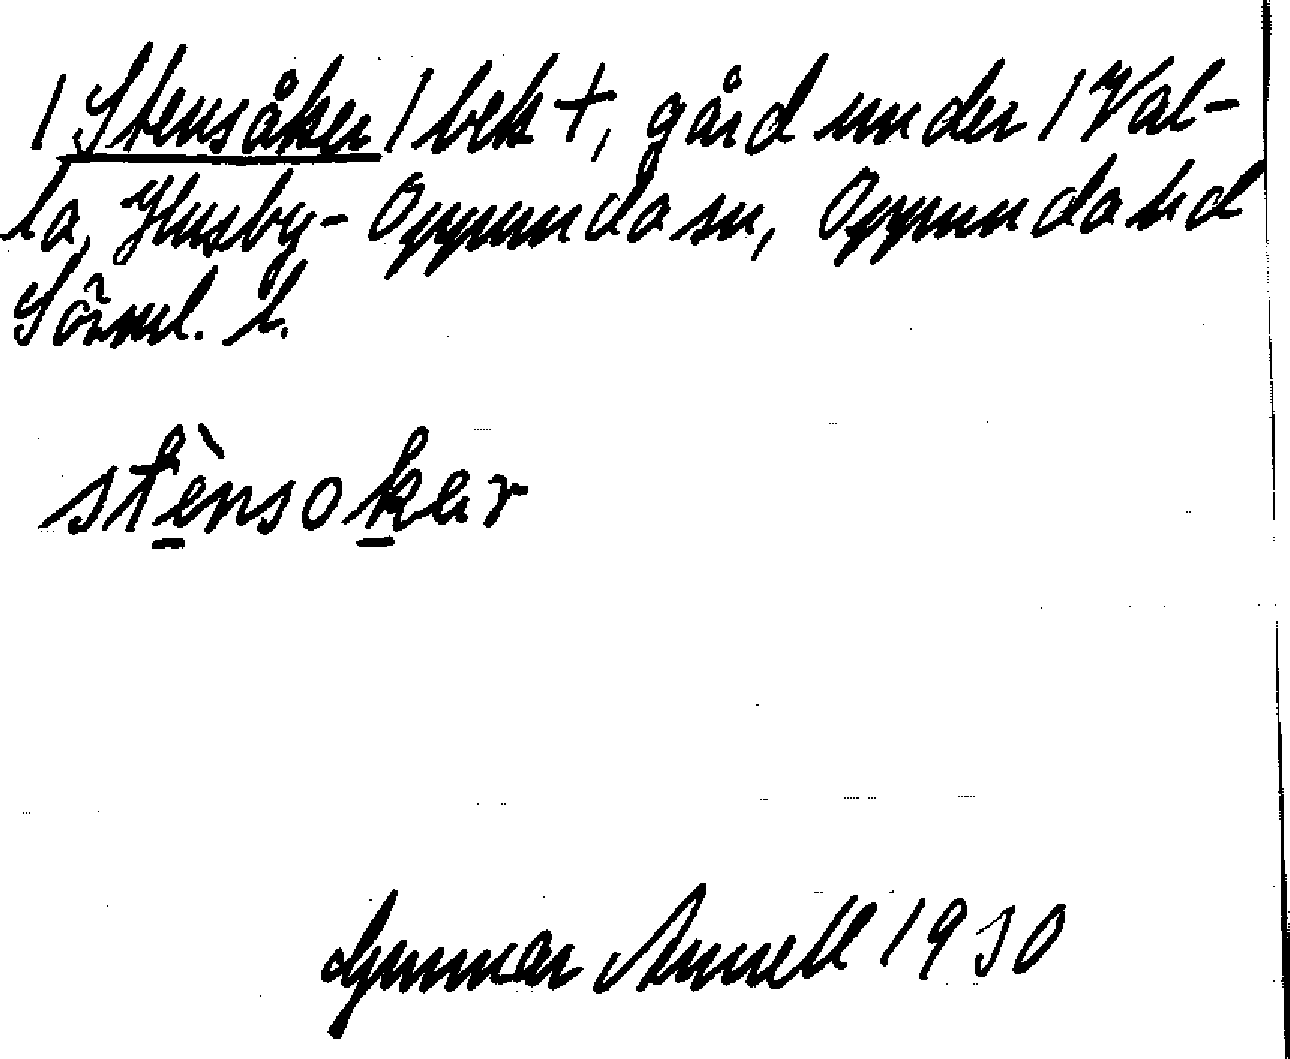 / Stensåker / bek +, gård under / Val-
la, Husby-Oppunda sn, Oppunda hd
Sörml. l.
stènsokər
Gunnar Annell 1930